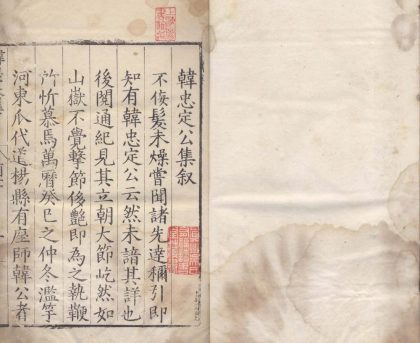 韓忠定公集叙
不佞髮未燥嘗聞諸先達稱引即
知有韓忠定公云然未諳其詳也
後閱通紀見其立朝大節屹然如
山嶽不覺擊節後艷即為之執鞭
所忻慕焉萬曆癸巳之仲冬濫竽
河東爪代道楊縣有座師韓公者